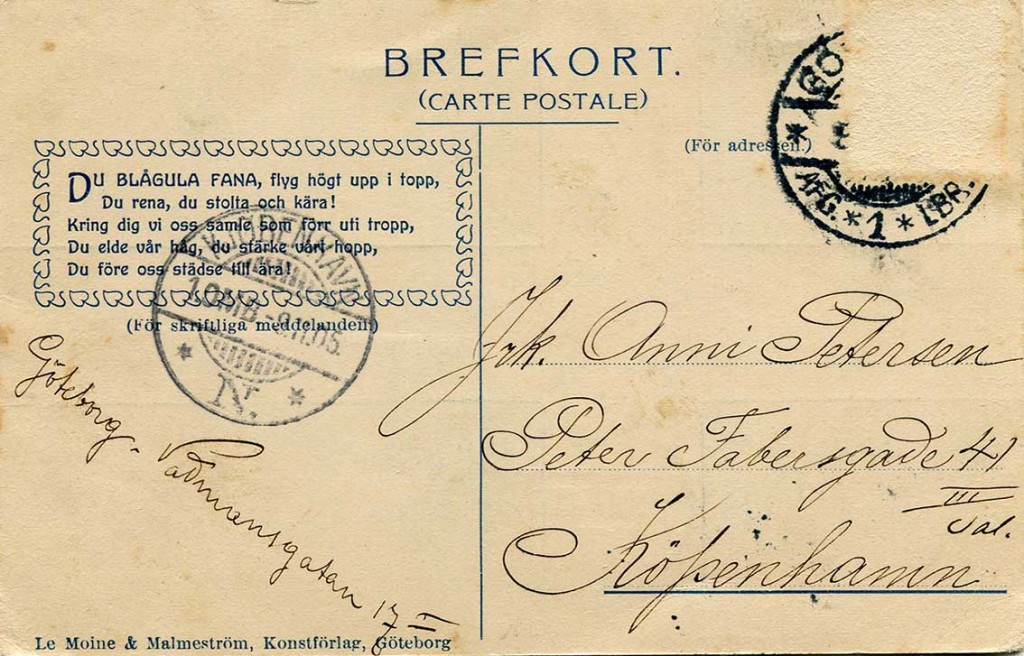 BREFKORT.
(CARTE POSTALE)
(För adressen.)
DU BLÅGULA FANA, flyg högt upp i topp,
Du rena, du stolta och kära!
Kring dig vi oss samle som förr uti tropp,
Du elde vår håg, du stärke vårt hopp,
Du före oss städse till ära!
(För skriftliga meddelanden)
KJØBENHAVN
10MB -9.11.05.
* N. *
GÖ
* AFG. * 1 * LBR.
Frk. Anni Petersen
Peter Fabersgade 41
III
Sal.
Köpenhamn
Göteborg - Vadmansgatan 17 II
Le Moine & Malmeström, Konstförlag, Göteborg